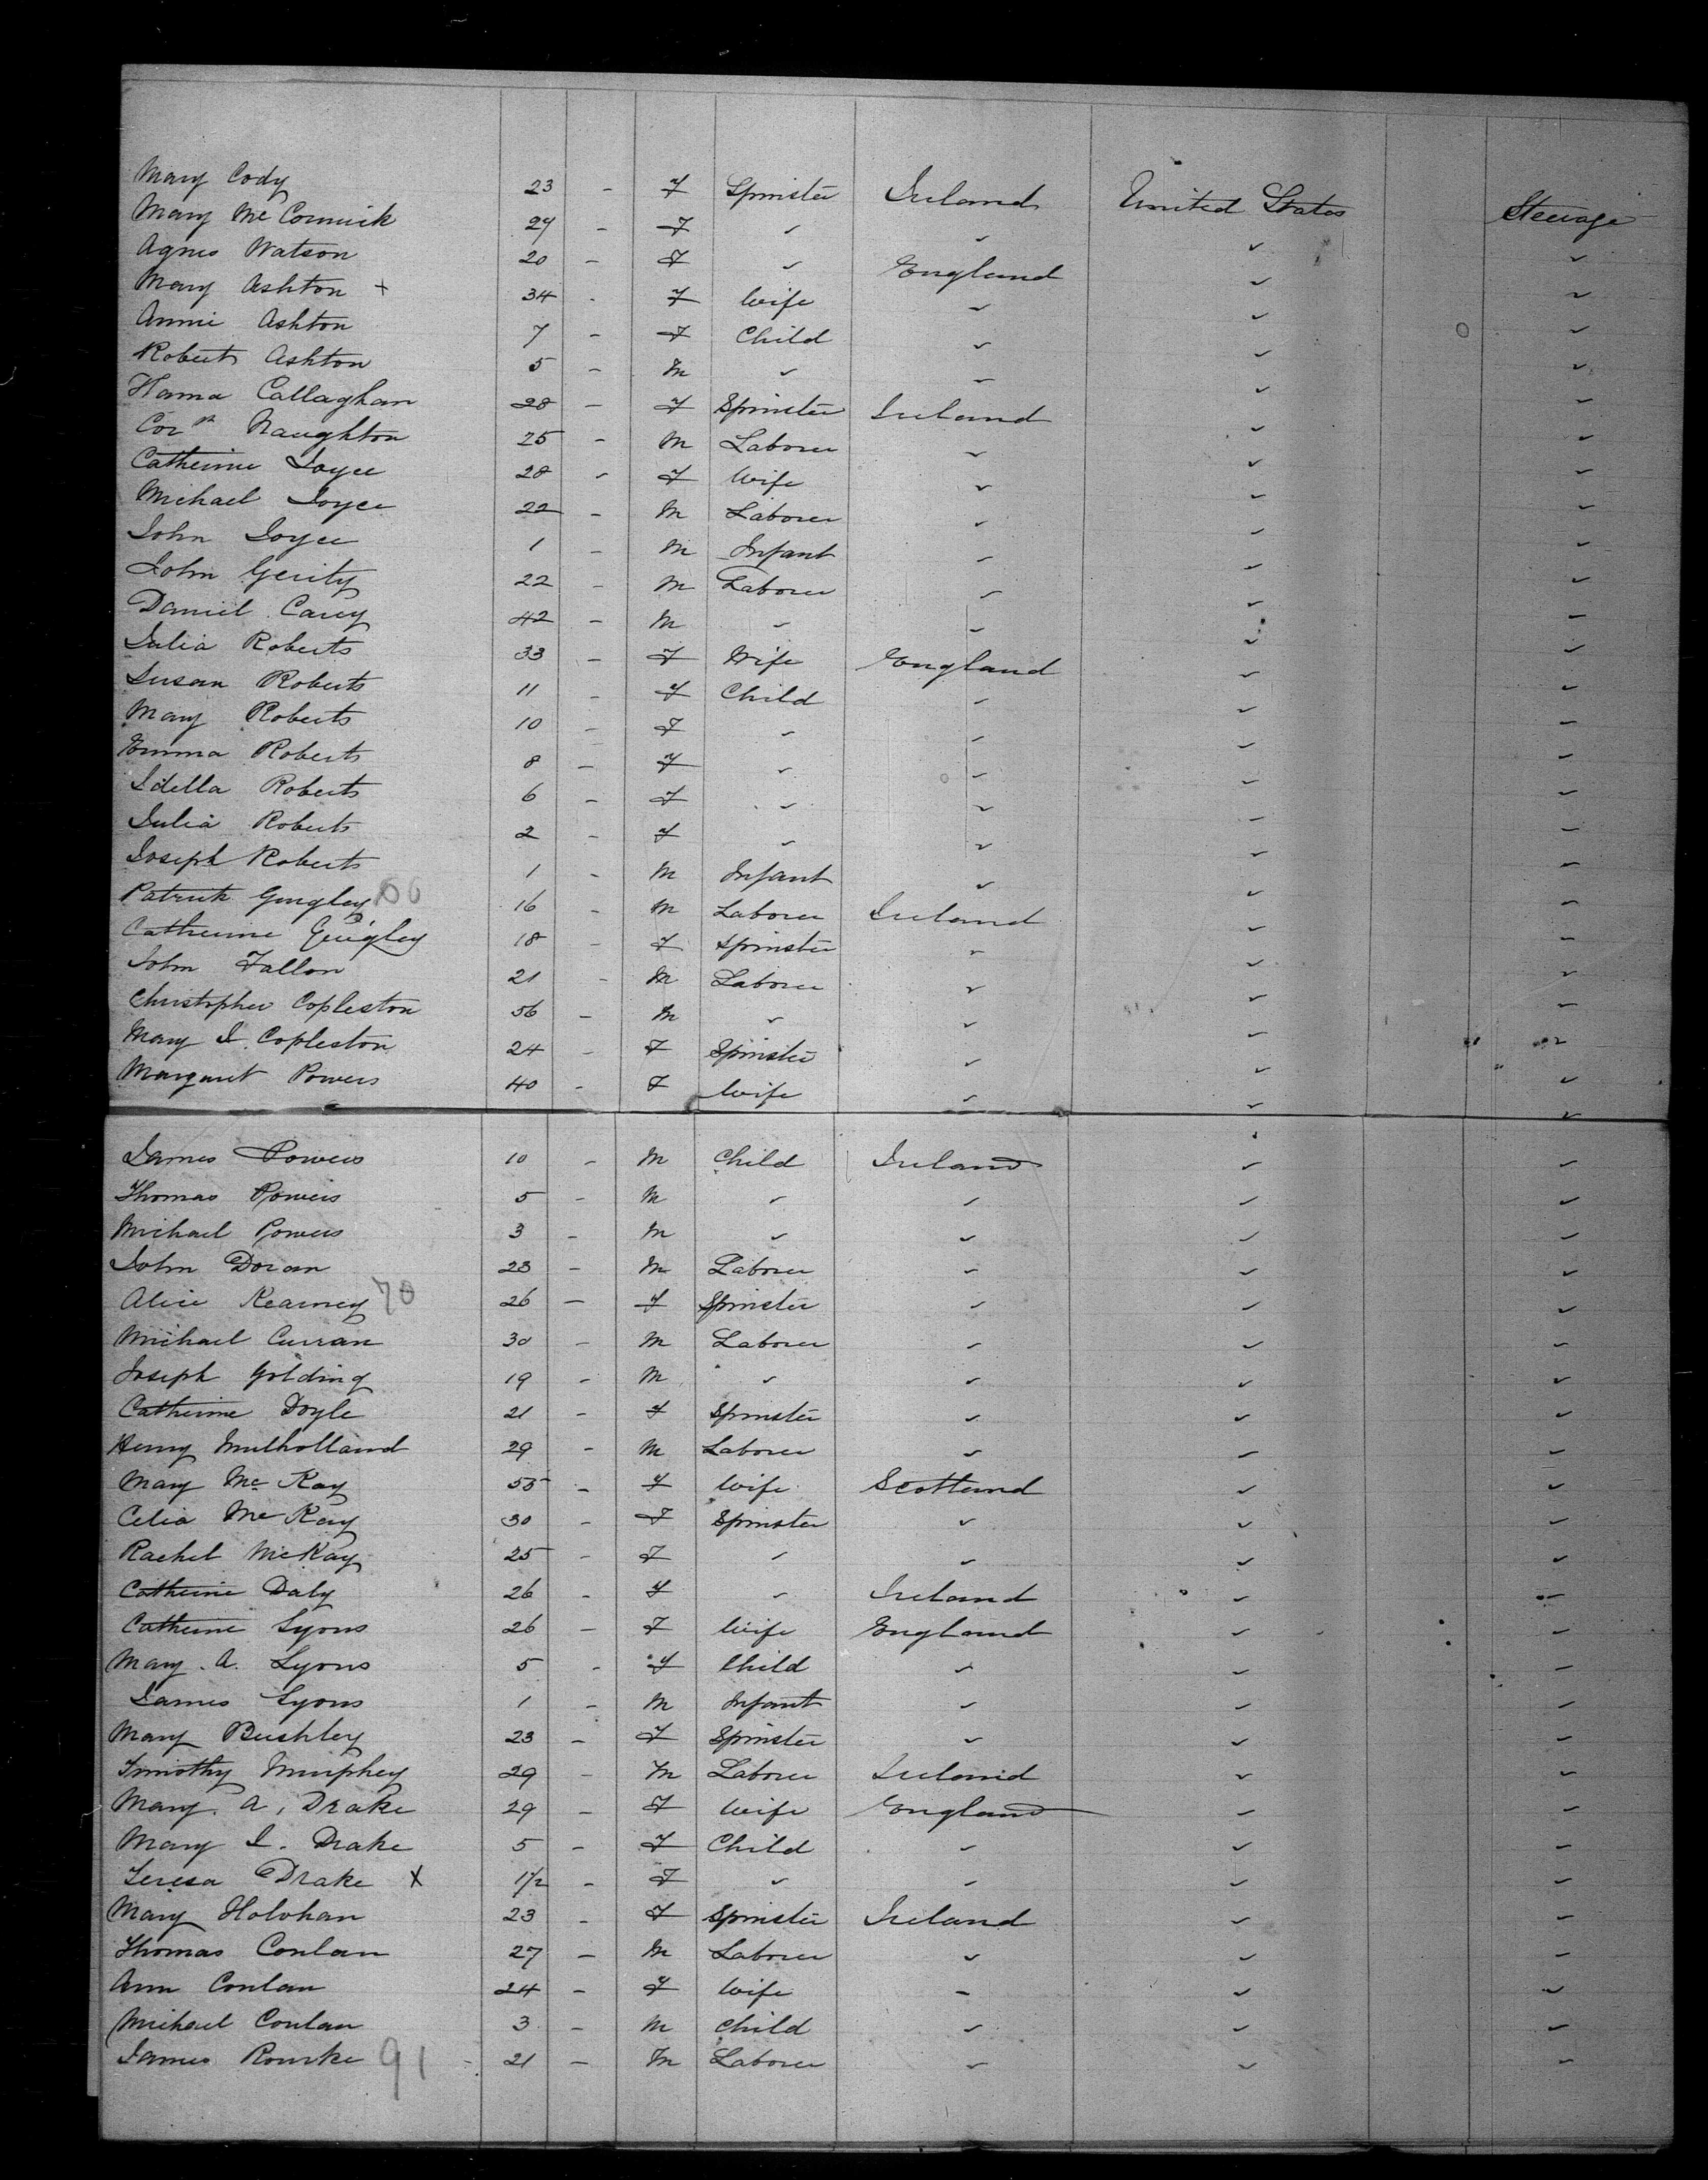 Mary Cody 23 - F Spinster Ireland United States Steerage
Mary McCormick 24 - F ✓ ✓ ✓ ✓
Agnes Watson 20 - F ✓ England ✓ ✓
Mary Ashton + 34 - F Wife ✓ ✓ ✓
Annie Ashton 7 - F Child ✓ ✓ ✓
Robert Ashton 5 - M ✓ ✓ ✓ ✓
Hanna Callaghan 28 - F Spinster Ireland ✓ ✓
Naughton 25 - M Laborer ✓ ✓ ✓
Catherine Joyce 28 - F Wife ✓ ✓ ✓
Michael Joyce 22 - M Laborer ✓ ✓ ✓
John Joyce 1 - M Infant ✓ ✓ ✓
John Gerity 22 - M Laborer ✓ ✓ ✓
Daniel Carey 42 - M ✓ ✓ ✓ ✓
Julia Roberts 33 - F Wife England ✓ ✓
Susan Roberts 11 - F Child ✓ ✓ ✓
Mary Roberts 10 - F ✓ ✓ ✓ ✓
Emma Roberts 8 - F ✓ ✓ ✓ ✓
Idella Roberts 6 - F ✓ ✓ ✓ ✓
Julia Roberts 2 - F ✓ ✓ ✓ ✓
Joseph Roberts 1 - M Infant ✓ ✓ ✓
Patrick 16 - M Laborer Ireland ✓ ✓
Catherine Quigley 18 - F Spinster ✓ ✓ ✓
John Fallon 21 - M Laborer ✓ ✓ ✓
Christopher Copleston 56 - M ✓ ✓ ✓ ✓
Mary J. Copleston 24 - F Spinster ✓ ✓ ✓
Margaret Powers 40 - F Wife ✓ ✓ ✓
James Powers 10 - M Child Ireland ✓ ✓
Thomas Powers 5 - M ✓ ✓ ✓ ✓
Michael Powers 3 - M ✓ ✓ ✓ ✓
John Doran 23 - M Laborer ✓ ✓ ✓
Alice Kearney 70 26 - F Spinster ✓ ✓ ✓
Michael Curran 30 - M Laborer ✓ ✓ ✓
Joseph Golding 19 - M ✓ ✓ ✓ ✓
Catherine Doyle 21 - F Spinster ✓ ✓ ✓
Henry Mulholland 29 - M Laborer ✓ ✓ ✓
Mary McKay 55 - F Wife Scotland ✓ ✓
Celia McKay 30 - F Spinster ✓ ✓ ✓
Rachel McKay 25 - F ✓ ✓ ✓ ✓
Catherine Daly 26 - F ✓ Ireland ✓ ✓
Catherine Lyons 26 - F Wife England ✓ ✓
Mary. A. Lyons 5 - F Child ✓ ✓ ✓
James Lyons 1 - M Infant ✓ ✓ ✓
Mary Bushley 23 - F Spinster ✓ ✓ ✓
Timothy Murphey 29 - M Laborer Ireland ✓ ✓
Mary. A. Drake 29 - F Wife England ✓ ✓
Mary J. Drake 5 - F Child ✓ ✓ ✓
Teresa Drake X 1/2 - F ✓ ✓ ✓ ✓
Mary Holohan 23 - F Spinster Ireland ✓ ✓
Thomas Conlan 27 - M Laborer ✓ ✓ ✓
Ann Conlan 24 - F Wife ✓ ✓ ✓
Michael Conlan 3 - M Child ✓ ✓ ✓
James Rourke 91 21 - M Laborer ✓ ✓ ✓